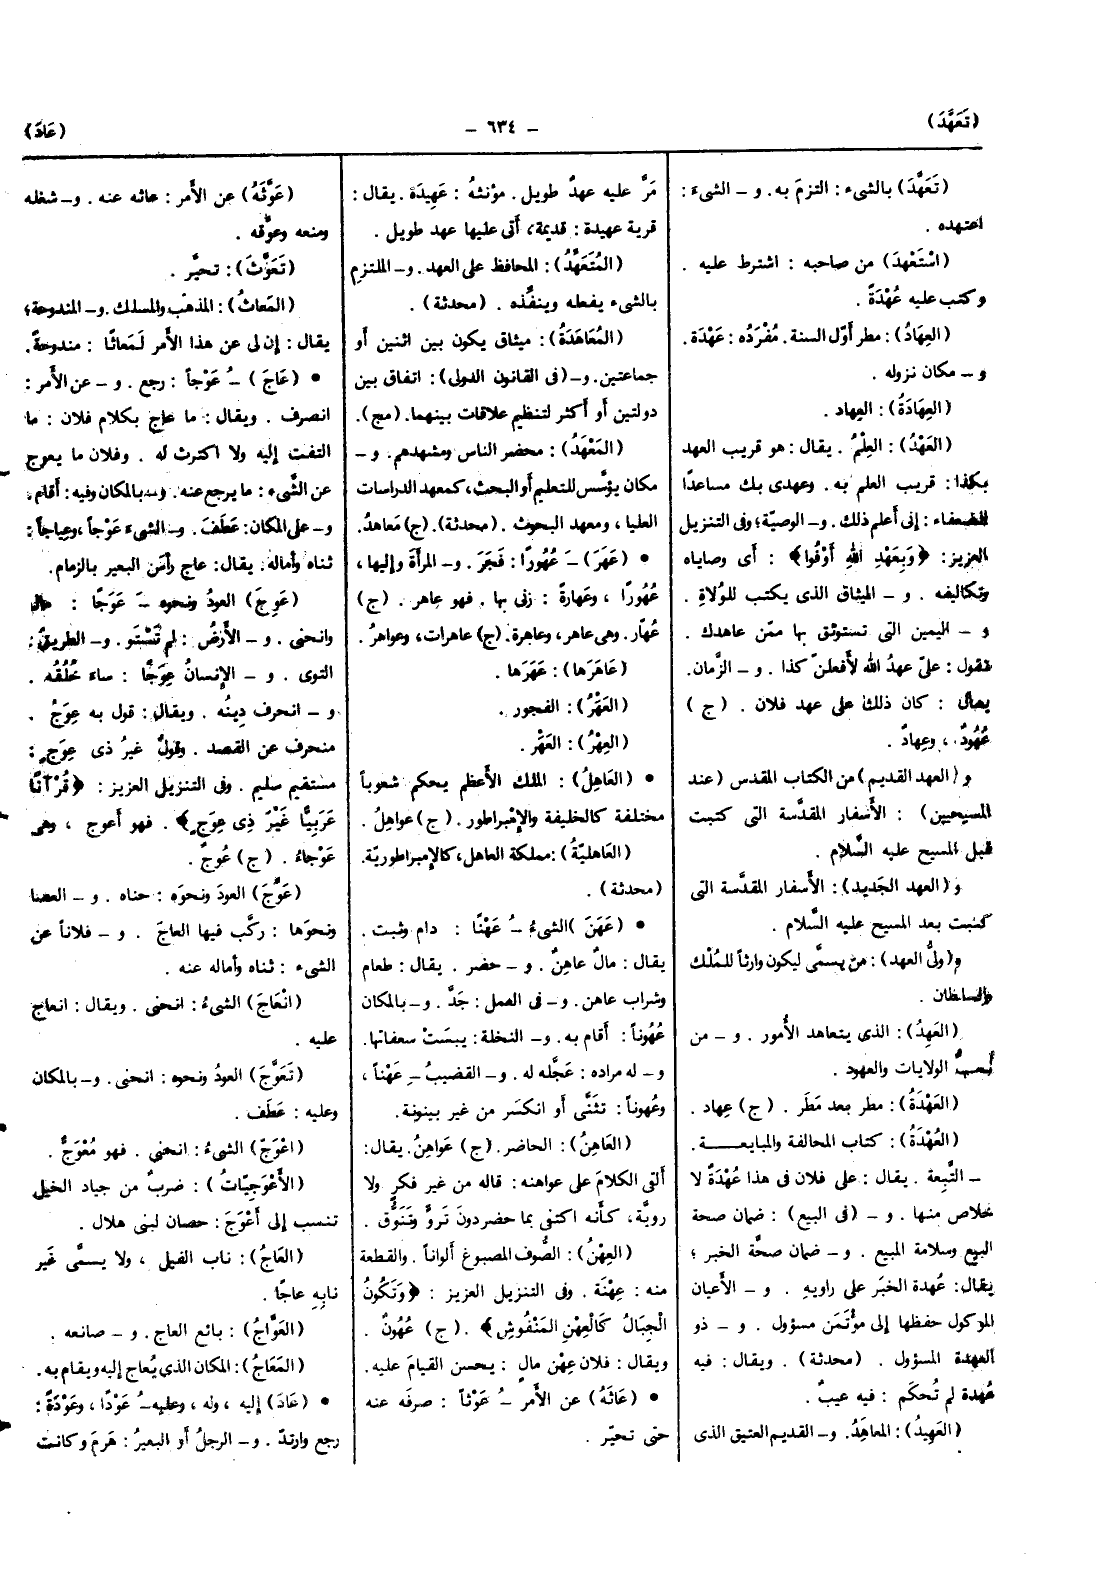 (تَعَهَّدَ)
- ٦٣٤ -
(عَادَ)
(تَعَهَّدَ) بالشىء : التزمَ به. و – الشىءَ :
اعتهده .
(اسْتَعْهدَ) من صاحبه : اشترط عليه .
وكتب عليه عُهْدَةً .
(العِهَادُ) : مطر أوّل السنة. مُفْرَدُه : عَهْدَة.
و – مكان نزوله .
(العِهَادَةُ) : العِهاد .
(العَهْدُ) : العِلْمُ . يقال : هو قريب العهد
بكذا : قريب العلم به . وعهدى بك مساعدًا
للضعفاء : إنى أعلم ذلك . و– الوصيّة ؛ وفى التنزيل
العزيز: ﴿وَبِعَهْدِ اللهِ أَوْفُوا﴾ : أى وصاياه
وتكاليفه . و – الميثاق الذى يكتب للوُلاةِ .
و – اليمين التى تستوثق بها ممّن عاهدك .
تقول : علىّ عهدُ الله لأفعلنّ كذا . و – الزَّمان.
يقال : كان ذلك على عهد فلان . (ج)
عُهُودٌ ، وعِهادٌ .
و (العهد القديم) من الكتاب المقدس (عند
المسيحيين) : الأَسفار المقدَّسة التى كتبت
قبل المسيح عليه السَّلام .
و (العهد الجَديد) : الأَسفار المقدَّسة التى
كتبت بعد المسيح عليه السَّلام .
و(ولىُّ العهد) : من يسمَّى ليكون وارثاً للمُلْك
والسلطان .
(العَهِدُ) : الذى يتعاهد الأُمور . و – من
يُحبُّ الولايات والعهود .
(العَهْدَةُ) : مطر بعد مَطَر . (ج) عِهاد .
(العُهْدَةُ) : كتاب المحالفة والمبايعـــة.
– التَّبِعة . يقال : على فلان فى هذا عُهْدَةٌ لا
خلاص منها . و – (فى البيع) : ضمان صحة
البيع وسلامة المبيع . و – ضمان صحَّة الخبر ؛
يقال: عُهدة الخبَر على راويهِ . و – الأَعيان
الموكول حفظها إلى مؤْتَمَن مسؤول . و – ذو
العهدة المسؤول . (محدثة) . ويقال : فيه
عُهدة لم تُحكَم : فيه عيبٌ .
(العَهِيدُ) : المعاهَدُ. و– القديم العتيق الذى
مَرَّ عليه عهدٌ طويل . مؤنثهُ : عَهِيدَة . يقال :
قرية عهيدة : قديمة، أَتى عليها عهد طويل .
(المُتَعَهِّدُ) : المحافظ على العهد. و– الملتزم
بالشىء يفعله وينفِّذه . (محدثة) .
(المُعَاهَدَةُ) : ميثاق يكون بين اثنين أَو
جماعتين. و–(فى القانون الدولى) : اتفاق بين
دولتين أَو أكثر لتنظيم علاقات بينهما. (مج).
(المَعْهَدُ) : محضر الناس ومشهدهم . و –
مكان يؤسَّس للتعليم أو البحث، كمعهد الدراسات
العليا ، ومعهد البحوث . (محدثة). (ج) مَعاهدُ.
• (عَهَرَ) – عُهُورًا: فَجَرَ . و– المرأَةَ وإليها ،
عُهُورًا ، وعَهارةً : زنى بها . فهو عاهر . (ج)
عُهّار . وهى عاهر، وعاهرة. (ج) عاهرات، وعواهرُ .
(عَاهَرَها) : عَهَرَها .
(العَهْرُ) : الفجور .
(العِهْرُ) : العَهْر .
• (العَاهِلُ) : الملك الأَعظم يحكم شعوباً
مختلفة كالخليفة والإمبراطور . (ج) عواهِلُ .
(العَاهليّةُ) : مملكة العاهل، كالإمبراطوريّة.
(محدثة) .
• (عَهَنَ) الشىءُ ـُ عَهْنًا : دام وثبت .
يقال : مالٌ عاهِنٌ . و – حضر . يقال : طعام
وشراب عاهن . و– فى العمل : جَدَّ . و– بالمكان
عُهُوناً : أقام به . و– النخلة : يبسَتْ سعفاتها.
و – له مراده : عَجَّله له . و– القضيبُ ـِ عَهْناً ،
وعُهوناً : تثنَّى أَو انكسَر من غير بينونة.
(العَاهِنُ) : الحاضر . (ج) عَواهِنُ. يقال :
أَلقى الكلامَ على عواهنه : قاله من غير فكرٍ ولا
رويَّة، كأَنه اكتفى بما حضر دونَ تَروٍّ وتَنَوُّق .
(العِهْنُ) : الصُّوف المصبوغ أَلواناً . والقطعة
منه : عِهْنَة . وفى التنزيل العزيز : ﴿وَتَكُونُ
الْجِبَالُ كَالْعِهْنِ المَنْفُوشِ﴾ . (ج) عُهُونٌ .
ويقال : فلان عِهْن مالٍ : يحسن القيامَ عليه.
• (عَاثَهُ) عن الأَمر ـُ عَوْثاً : صرفَه عنه
حتى تحيّر .
(عَوَّثَهُ) عن الأَمر : عاثه عنه . و– شغله
ومنعه وعوَّقه .
(تَعَوَّثَ) : تحيَّر .
(المَعاثُ) : المذهَب والمسلك . و– المندوحة ؛
يقال : إن لى عن هذا الأَمر لَمَعاثًا : مندوحةً.
• (عَاجَ) ـُ عَوْجاً : رجع . و – عن الأَمر :
انصرف . ويقال : ما عاج بكلام فلان : ما
التفت إليه ولا اكترث له . وفلان ما يعوج
عن الشَّىء : ما يرجع عنه. و– بالمكان وفيه : أَقام.
و– على المكان: عَطَفَ. و– الشىءَ عَوْجاً، وعِياجاً :
ثناه وأماله. يقال: عاج رأْسَ البعير بالزمام.
(عَوِجَ) العودُ ونحوه ـَ عَوَجًا : مال
وانحنى . و – الأَرضُ : لم تَسْتَوِ . و– الطريقُ :
التوى . و – الإنسانُ عِوَجًا : ساءَ خُلُقُه .
و – انحرف دِينُه . ويقال : قول به عِوَجٌ .
منحرف عن القصد . وقولٌ غيرُ ذى عِوَجٍ :
مستقيم سليم . وفى التنزيل العزيز : ﴿قُرْآنًا
عَرَبِيًّا غَيْرَ ذِى عِوَجٍ﴾ . فهو أَعوج ، وهى
عَوْجاءُ . (ج) عُوجٌ .
(عَوَّجَ) العودَ ونحوَه : حناه . و – العصا
ونحوَها : ركَّب فيها العاجَ . و – فلاناً عن
الشىء : ثناه وأماله عنه .
(انْعَاجَ) الشىءُ : انحنى . ويقال : انعاج
عليه .
(تَعَوَّجَ) العودُ ونحوه : انحنى . و– بالمكان
وعليه : عَطَف .
(اعْوَجّ) الشىءُ : انحنى . فهو مُعْوَجٌّ .
(الأَعْوَجِيّاتُ) : ضربٌ من جياد الخيل
تنسب إلى أَعْوَجَ : حصان لبنى هلال .
(العَاجُ) : ناب الفيل ، ولا يسمَّى غَير
نابِهِ عاجًا .
(العَوَّاجُ) : بائع العاج . و – صانعه .
(المَعَاجُ) : المكان الذى يُعاج إليه ويقام به.
• (عَادَ) إليه ، وله ، وعليه ـُ عَوْدًا ، وعَوْدَةً :
رجع وارتدّ . و– الرجلُ أو البعيرُ : هَرِمَ وكانت